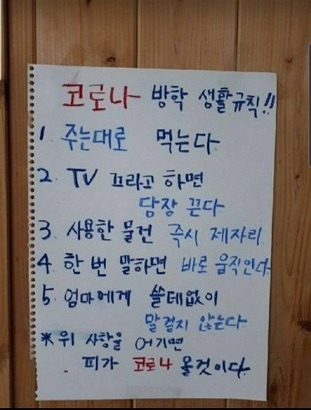 코로나 방학 생활규칙!!
1 주는대로 먹는다
2. TV 끄라고 하면
당장 끈다
3. 사용한 물건 즉시 제자리
4. 한 번 말하면 바로 움직인다
5. 엄마에게 쓸데없이
말걸지 않는다
* 위 사항을 어기면
피가 코로나 올것이다.